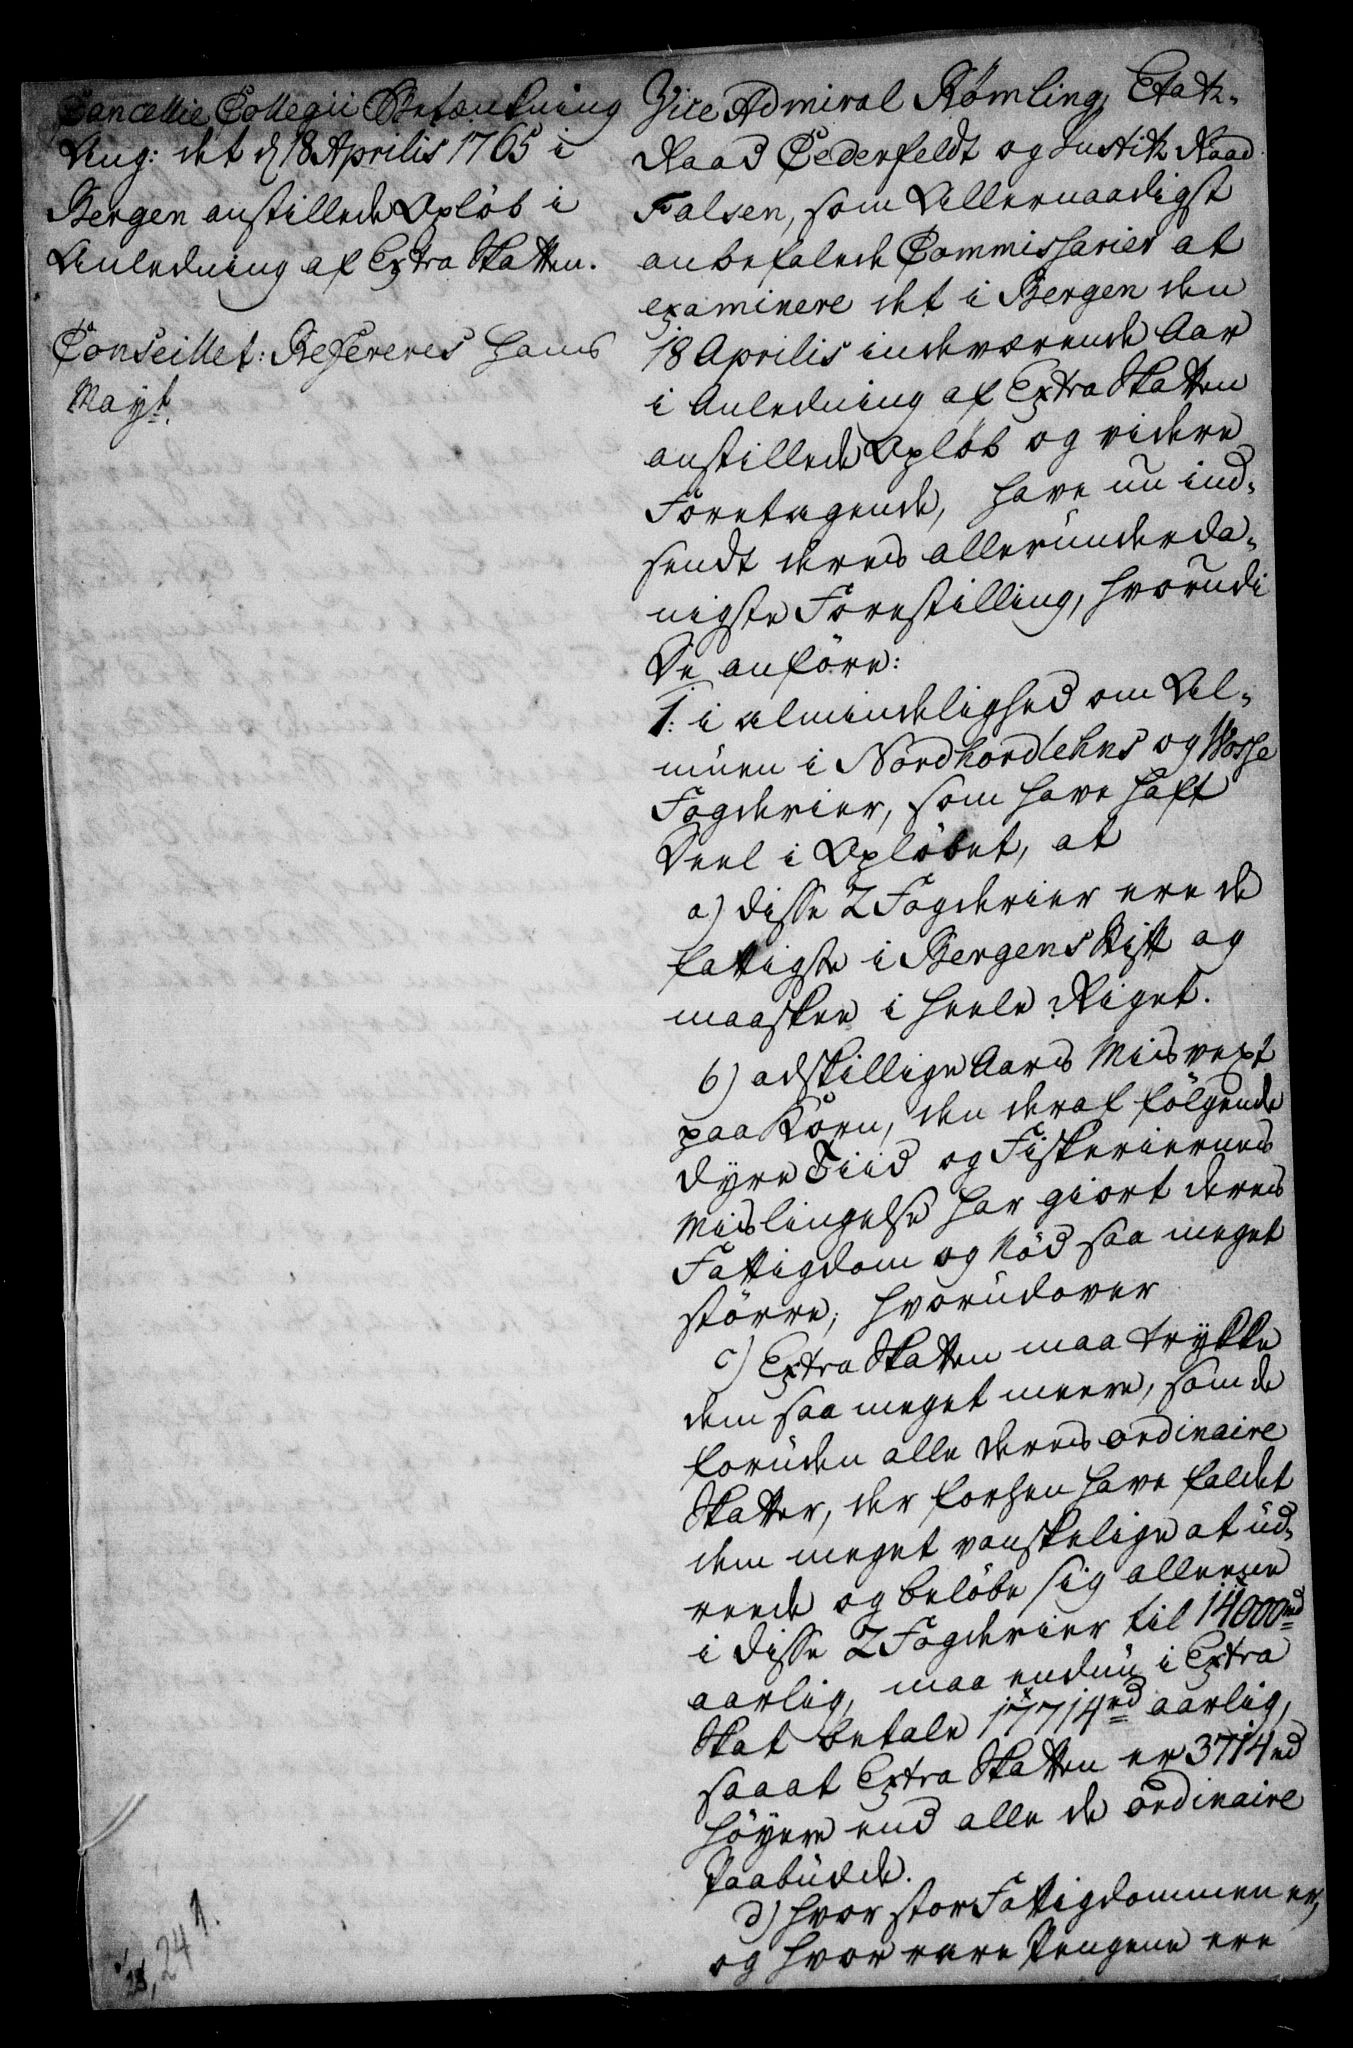 Cancellie Collegii Betænkning
Ang: det d 18 Aprilis 1765 i
Bergen anstillede Opløb i
Anledning af Extra Skatten.
Conseillet: Refereres Hans
Mayt.
Vice Admiral Rømling, Etatz-
Raad Cederfeldt og Justitz Raad
Falsen, som Allernaadigst
anbefalede Commissarier at
examinere det i Bergen den
18 Aprilis indeværende Aar
i Anledning af Extra Skatten
anstillede Opløb og videre
Foretagende, have nu ind-
sendt deres allerunderda-
nigste Forestilling, hvorudi
De anføre:
1. i almindelighed om Al-
muen i Nordhordlehns og Wosse
Fogderier, som have haft
Deel i Opløbet, at
a) disse 2 Fogderier ere de
fattigste i Bergens Stift og
maaskee i heele Riget.
b) adskillige Aars Misvext
paa Korn, den deraf følgende
dyre Tiid og Fiskeriernes
Mislingelse har giort deres
Fattigdom og Nød saa meget
større; hvorudover
c) Extra Skatten maa trykke
dem saa meget meere, som de
foruden alle deres ordinaire
Skatter, der forhen have faldet
dem meget vanskelige at ud-
reede og beløbe sig alleene
i disse 2 Fogderier til 14000 rd
aarlig, maa endnu i Extra
Skat betale 17714 rd aarlig,
saa at Extra Skatten er 3714 rd
høyere end alle de ordinaire
Paabudde.
d) hvor stor Fattigdommen er,
og hvor rare Pengene ere
24 1.